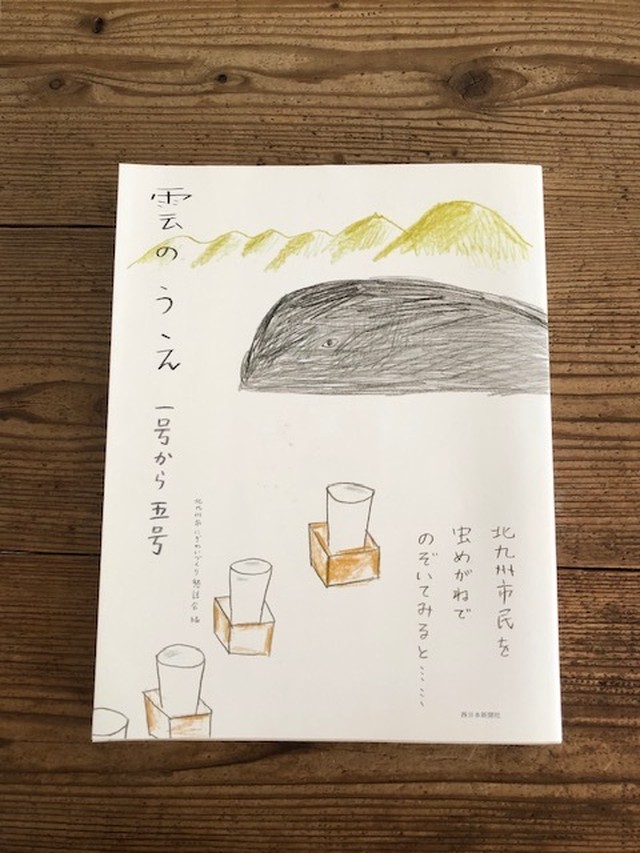 雲のうえ
一号から五号
北九州市にぎわいづくり懇話会 編
北九州市民を
虫めがねで
のぞいてみると……
西日本新聞社